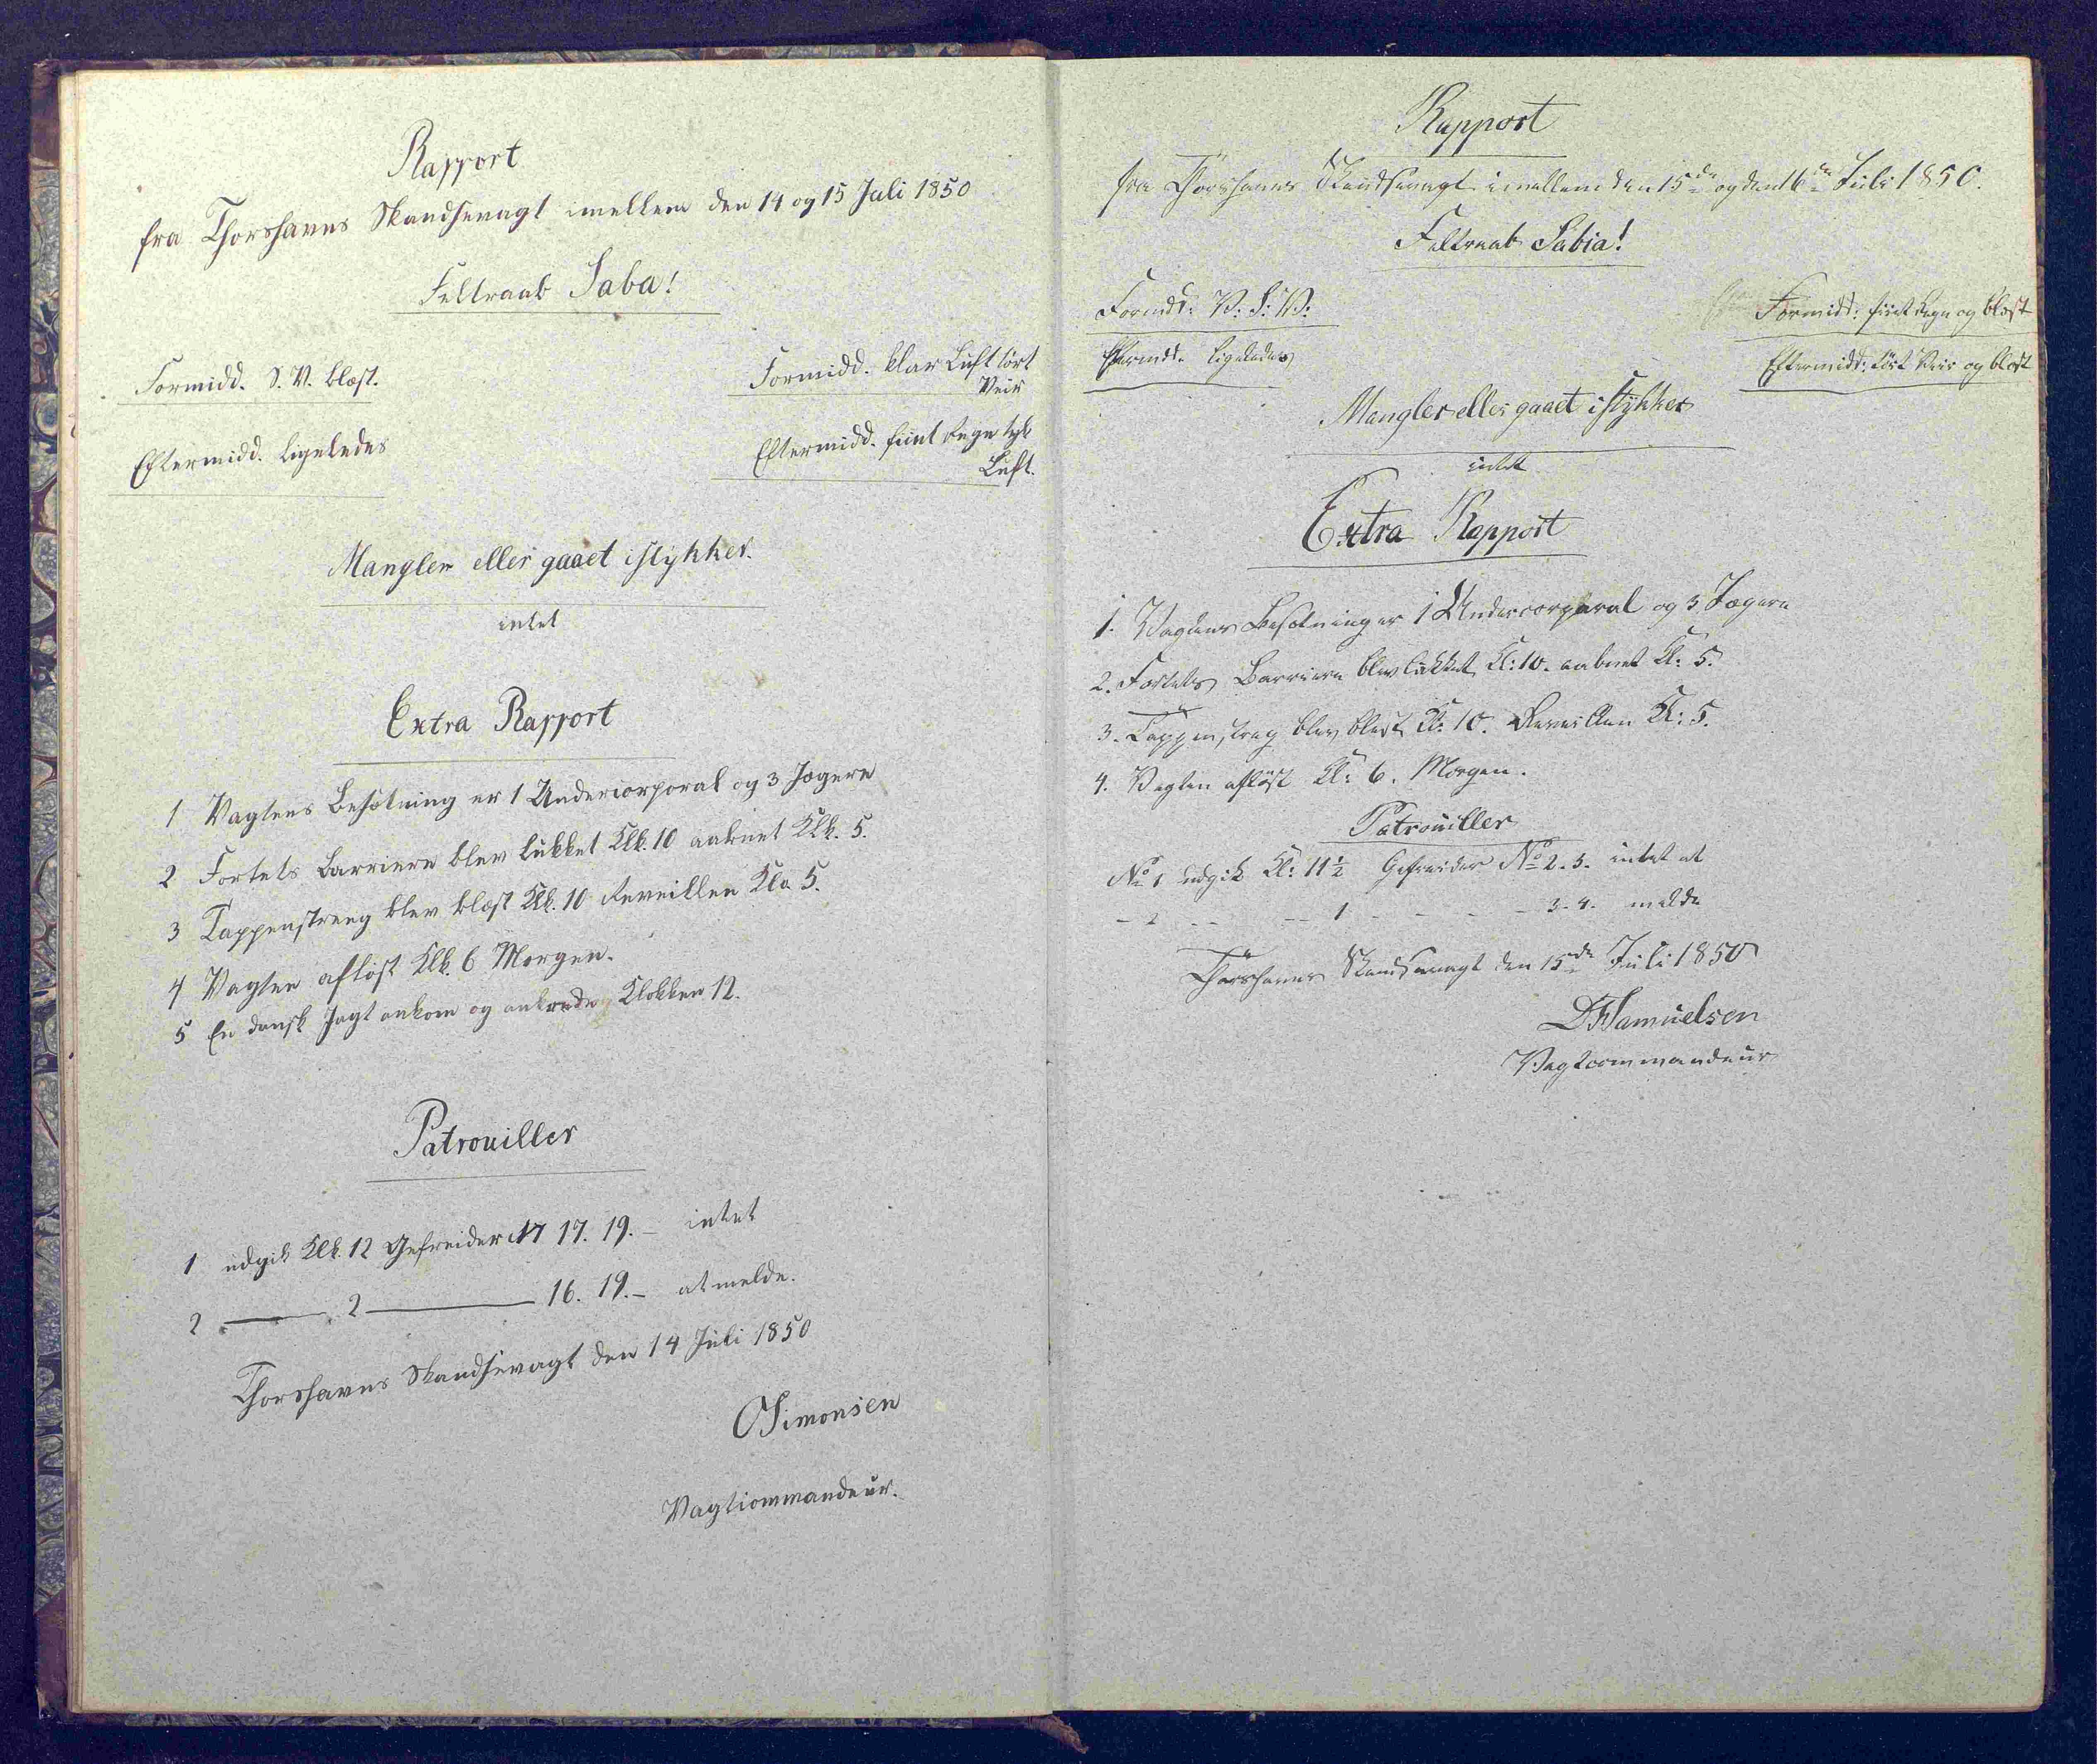 Rapport
fra Thorshavns Skandsevagt imellem den 14 og 15 Juli 1850
Feltraab Saba!
Formidd. S. V. blæst.
Formidd. klar Luft tört
Veir
Eftermidd. ligeledes
Eftermidd. fiint Regn tyk
Luft.
Mangler eller gaaet istykker.
intet
Extra Rapport
1 Vagtens Besætning er 1 Undercorporal og 3 Jægere
2 Fortets Barriere blev lukket Klk. 10 aabnet Klk. 5.
3 Tappenstreeg blev blæst Klk. 10 Reveillen Klo 5.
4 Vagten aflöst Klk. 6 Morgen.
5 En dansk Jagt ankom og ankrede Klokken 12.
Patrouiller
1 udgik Klk. 12 Gefreider 17. 19. – intet
2 ——— 2 ——— 16. 19. – at melde.
Thorshavns Skandsevagt den 14 Juli 1850
OSimonsen
Vagtcommandeur.
Rapport
fra Thorshavns Skandsevagt imellem den 15de og den 16de Juli 1850.
Feltraab Sabia!
Formdd: V: S: V:
Formidd: fiint Regn og blæst
Eftermdd. ligeledes
Eftermidd: tört Veir og blæst
Mangler eller gaaet istykker
intet
Extra Rapport
1. Vagtens Besætning er 1 Undercorporal og 3 Jægere
2. Fortets Barriere blev lukket Kl: 10. aabnet Kl: 5.
3. Tappenstreg blev blæst Kl: 10. Reveillen Kl: 5.
4. Vagten aflöst Kl: 6. Morgen.
Patrouiller
No 1 udgik Kl: 11½ Gefreider No 2. 3. intet at
– 2 – – – – 1 – – – – 3. 4. melde
Thorshavns Skandsevagt den 15de Juli 1850
DSamuelsen
Vagtcommandeur